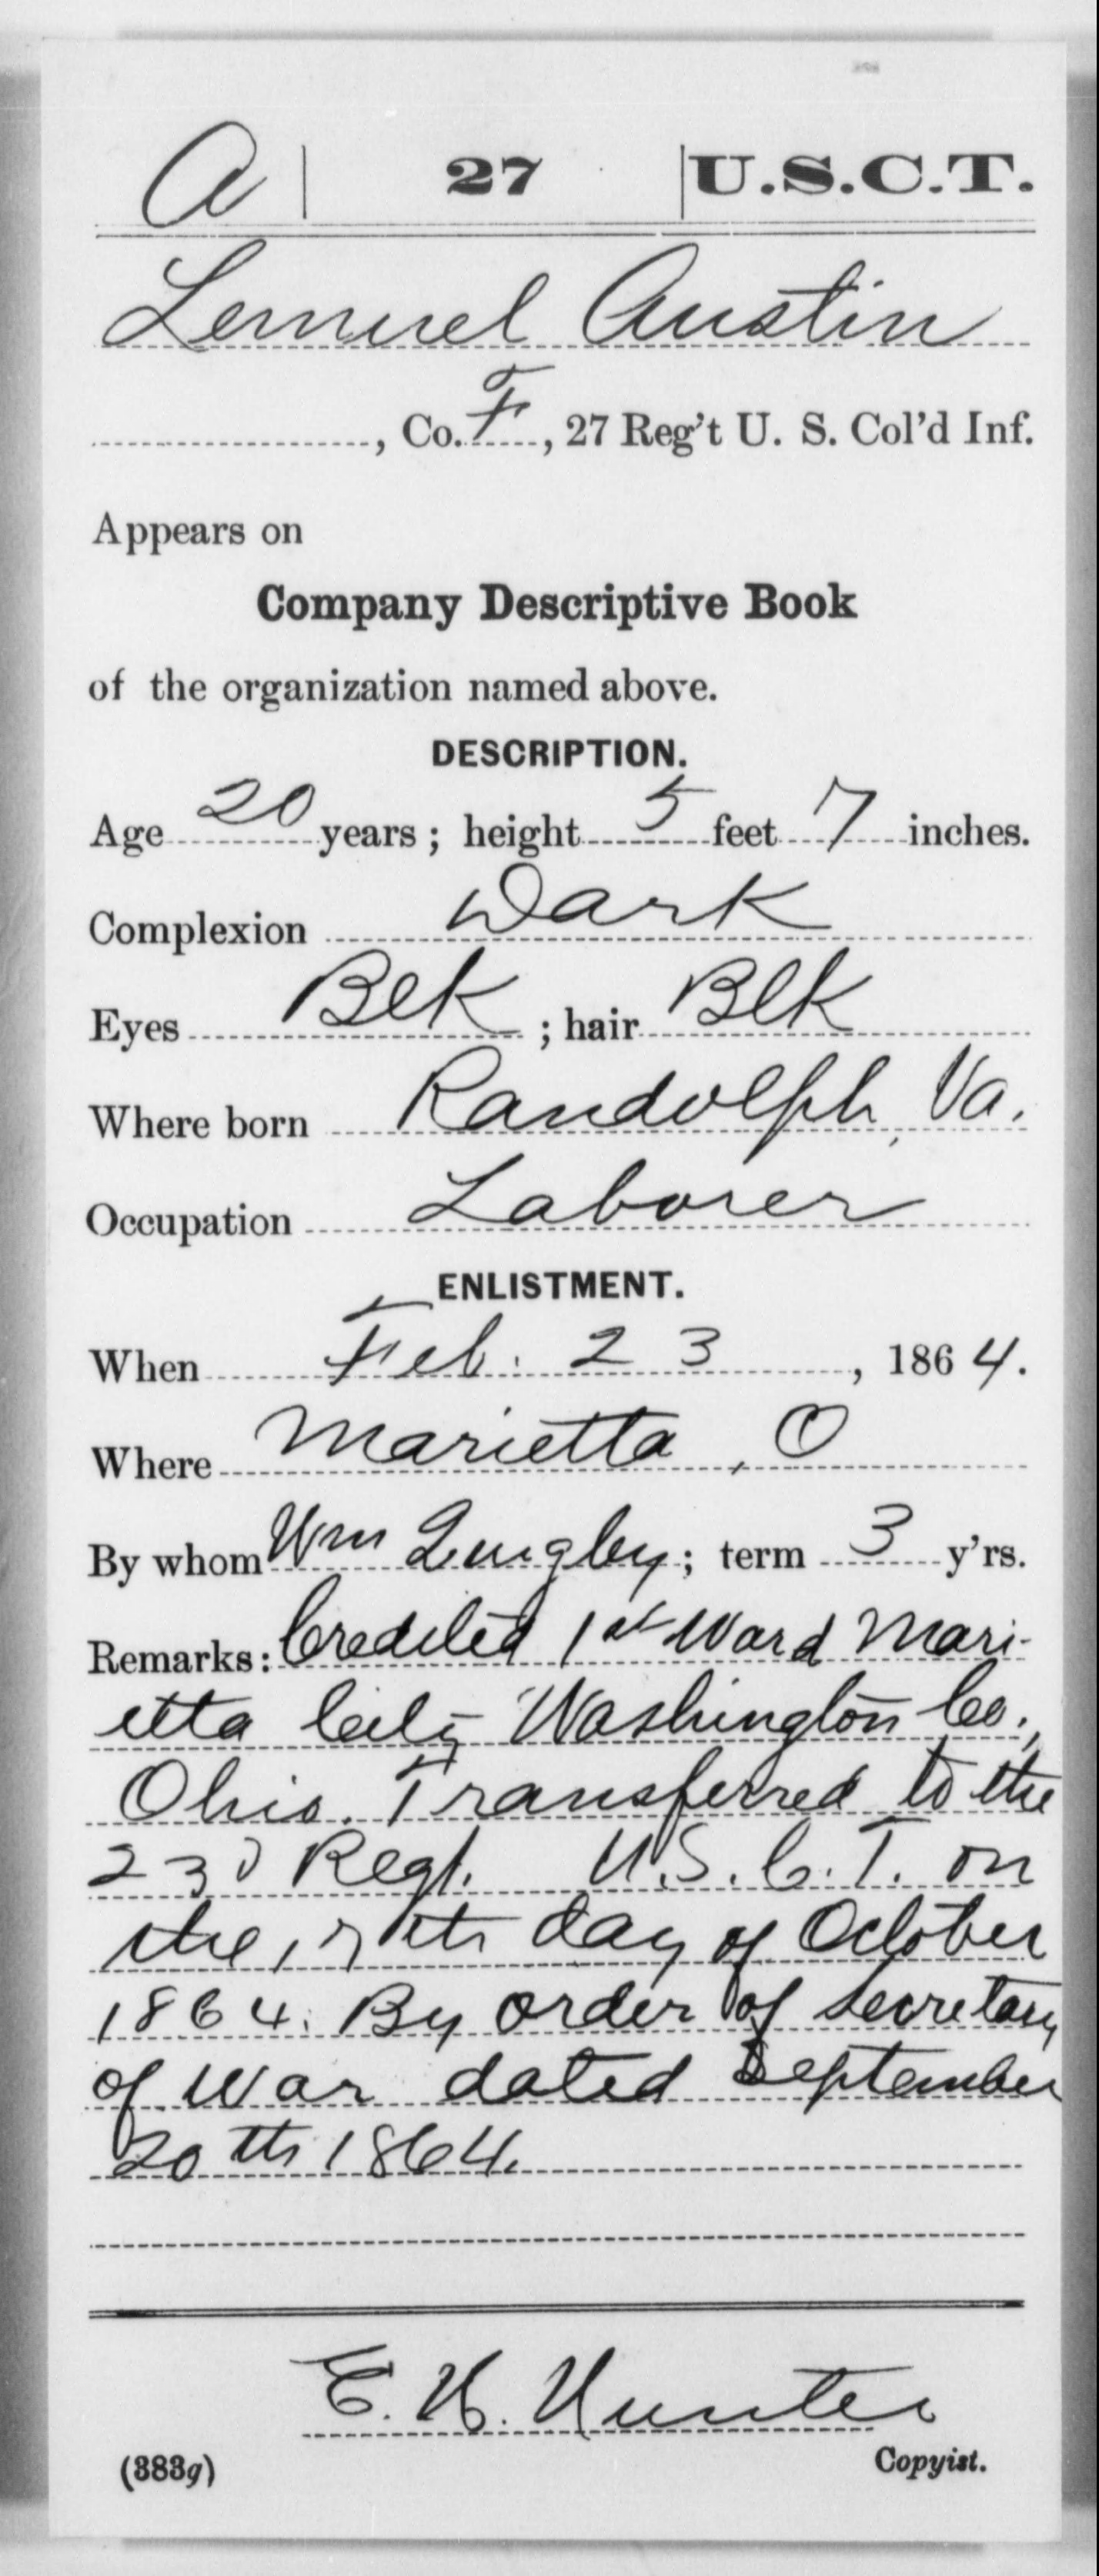 A | 27 | U.S.C.T.
Lemuel Austin
, Co. F, 27 Reg't U. S. Col'd Inf.
Appears on
Company Descriptive Book
of the organization named above.
DESCRIPTION.
Age 20 years; height 5 feet 7 inches.
Complexion Dark
Eyes Blk ; hair Blk
Where born Randolph, Va.
Occupation Laborer
ENLISTMENT.
When Feb. 23, 1864.
Where Marietta, O
By whom Wm ; term 3 y'rs.
Remarks: Credited 1st Ward Mari-
etta City Washington Co.,
Ohio. Transferred to the
23d Regt. U.S.C.T. on
the 17th day of October
1864. By order of Secretary
of War dated September
20th 1864.
E. H. Hunter
Copyist.
(383g)